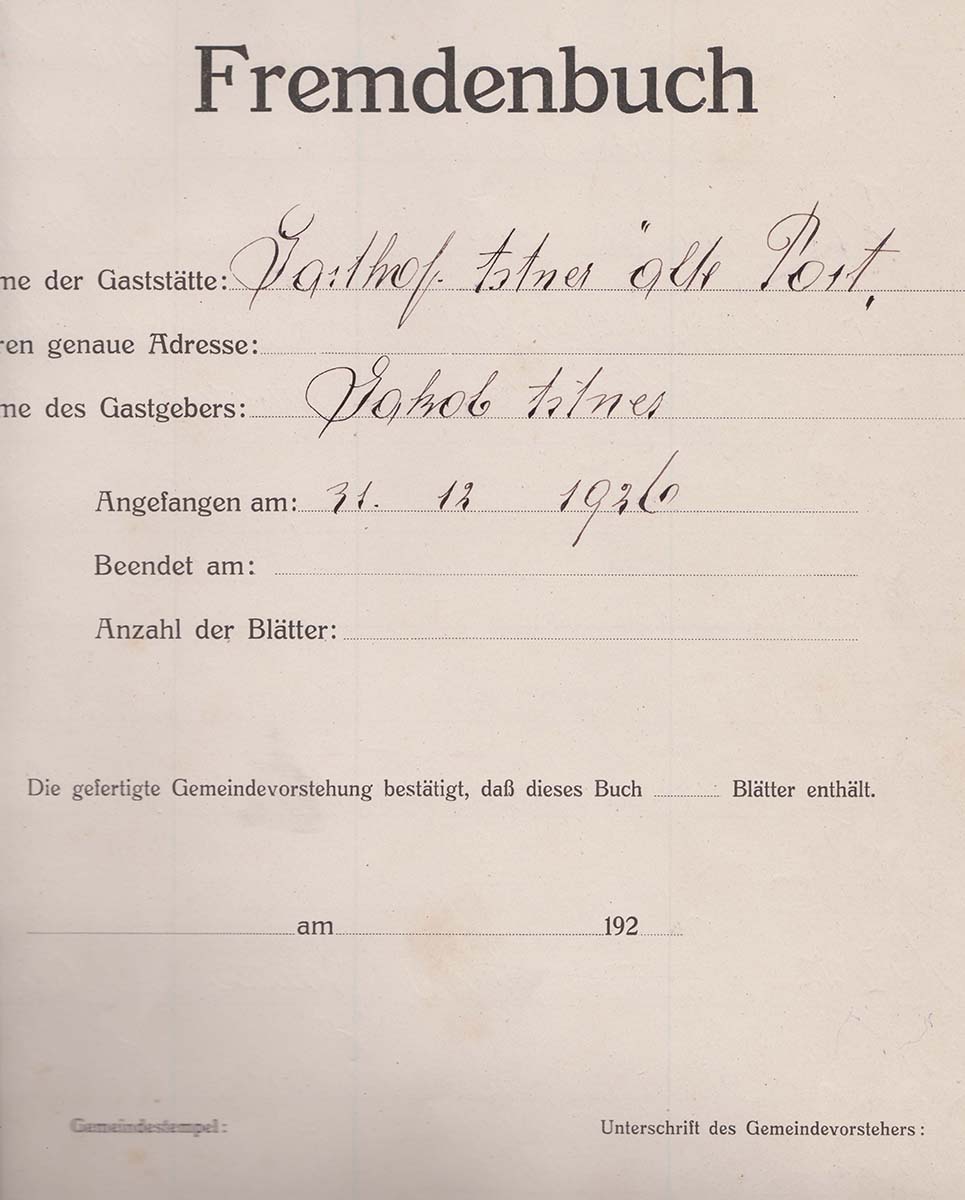 Fremdenbuch
me der Gaststätte: Gasthof. älte Post,
ren genaue Adresse:
me des Gastgebers: Jakob
Angefangen am: 31. 12 1926
Beendet am:
Anzahl der Blätter:
Die gefertigte Gemeindevorstehung bestätigt, daß dieses Buch Blätter enthält.
am 192
Gemeindestempel: Unterschrift des Gemeindevorstehers: